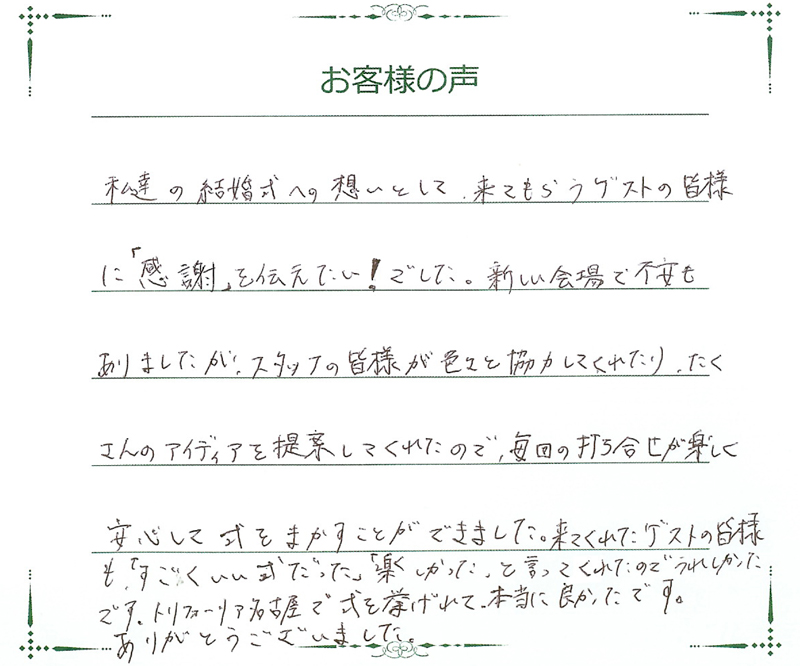 お客様の声
私達の結婚式への想いとして、来てもらうゲストの皆様
に「感謝」を伝えたい!でした。新しい会場で不安も
ありましたが、スタッフの皆様が色々と協力してくれたり、たく
さんのアイディアを提案してくれたので、毎回の打ち合せが楽しく
安心して式をまかすことができました。来てくれたゲストの皆様
も、「すごくいい式だった」「楽しかった」と言ってくれたのでうれしかった
です。トリフォーリア名古屋で式を挙げれて、本当に良かったです。
ありがとうございました。